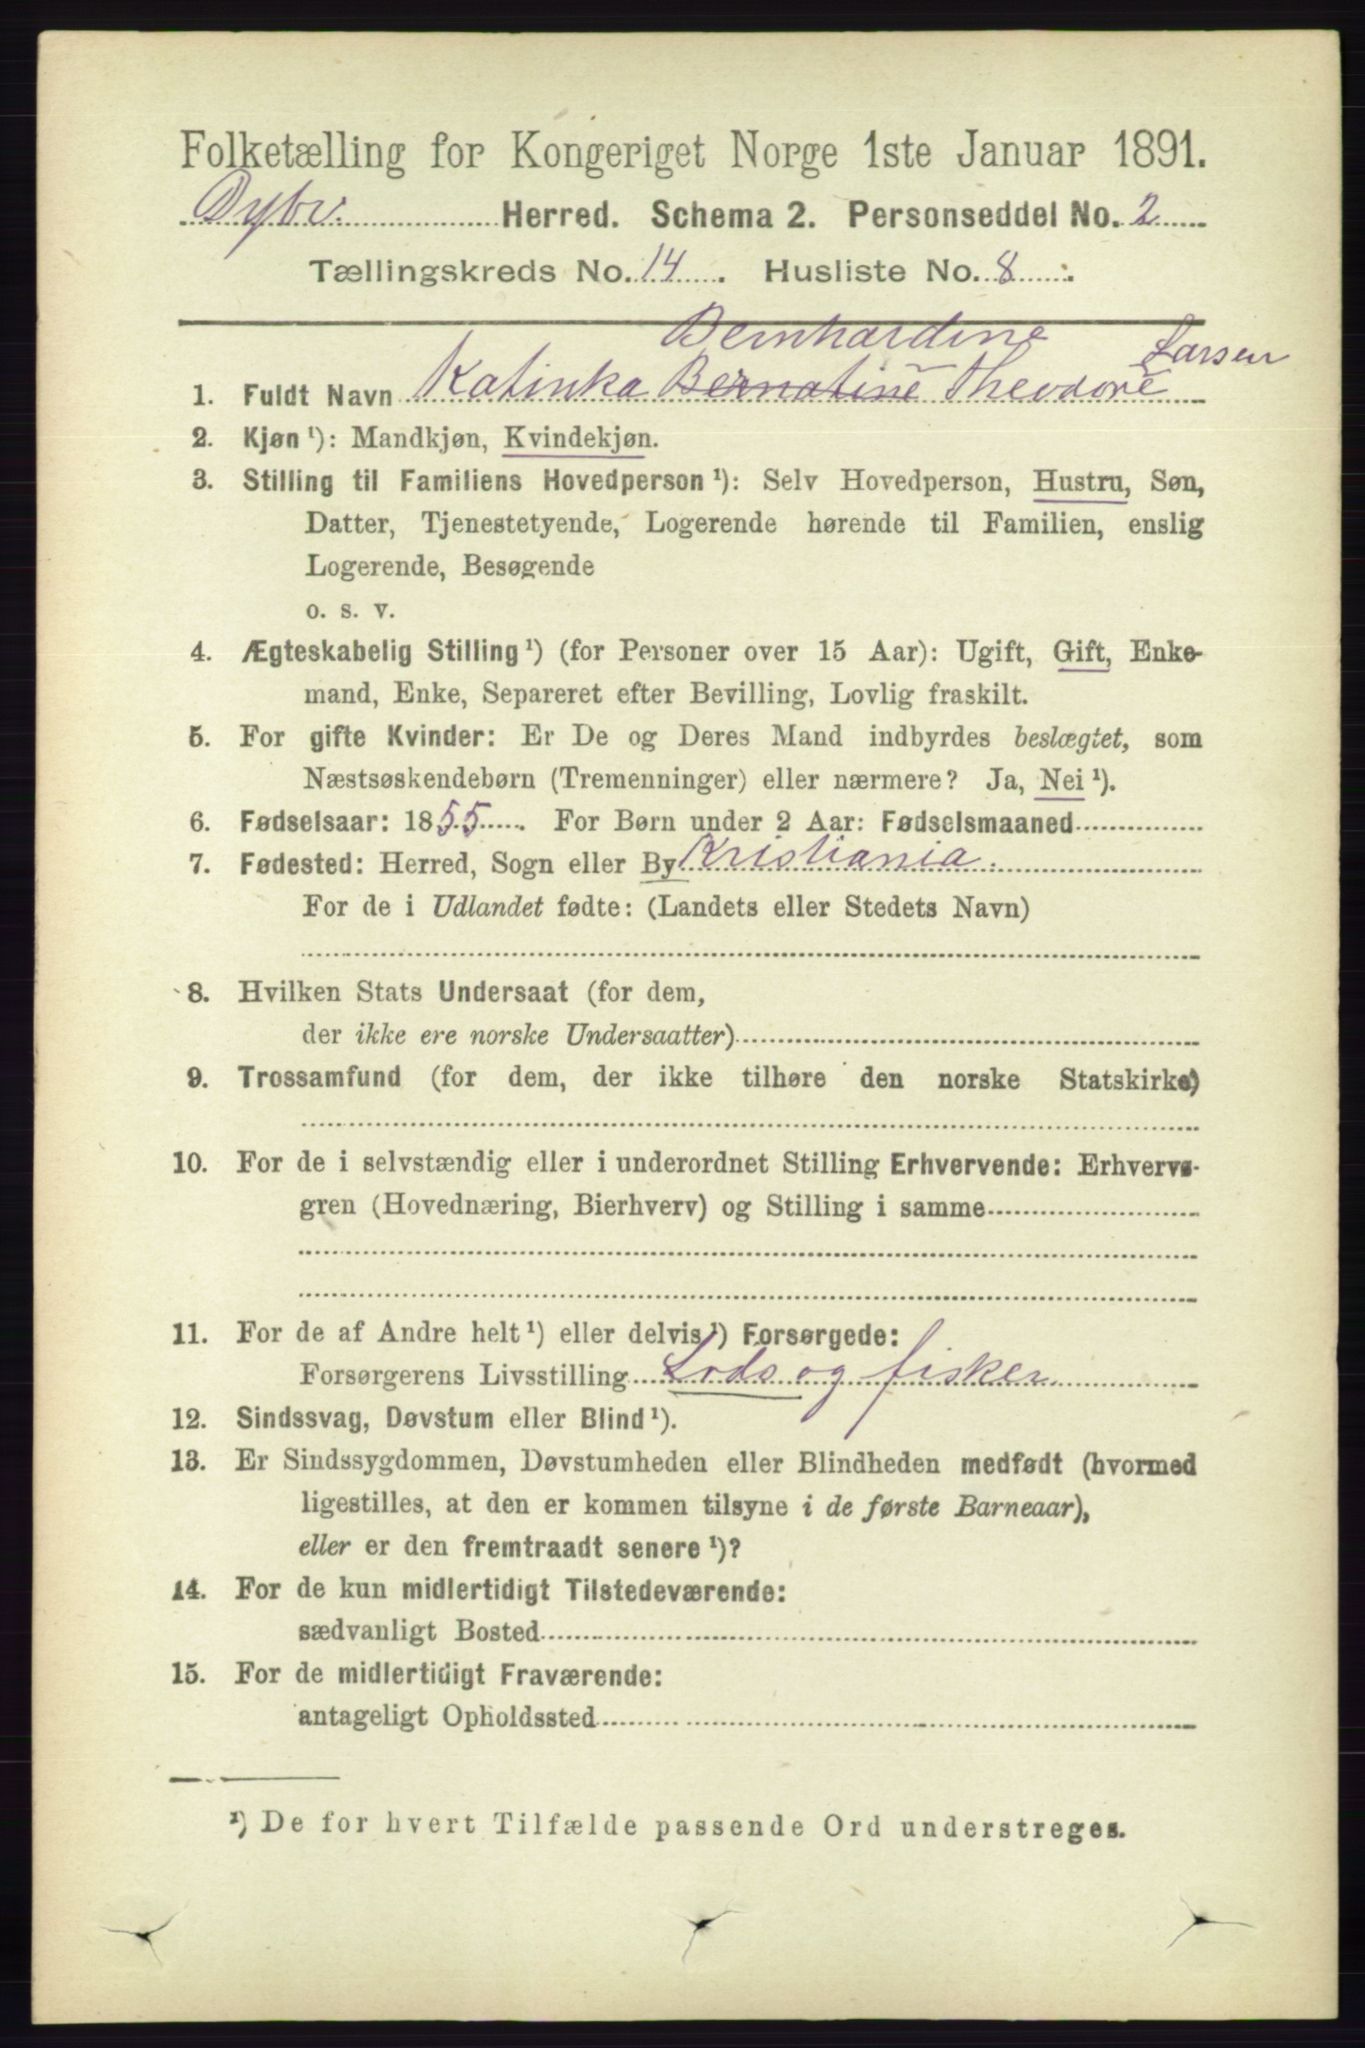 Folketælling for Kongeriget Norge 1ste Januar 1891.
Dybv. Herred. Schema 2. Personseddel No. 2
Tællingskreds No. 14. Husliste No. 8.
Bernhardine Larsen
1. Fuldt Navn Katinka Bernatine Theodore
2. Kjøn ¹): Mandkjøn, Kvindekjøn.
3. Stilling til Familiens Hovedperson ¹): Selv Hovedperson, Hustru, Søn,
Datter, Tjenestetyende, Logerende hørende til Familien, enslig
Logerende, Besøgende
o. s. v.
4. Ægteskabelig Stilling ¹) (for Personer over 15 Aar): Ugift, Gift, Enke-
mand, Enke, Separeret efter Bevilling, Lovlig fraskilt.
5. For gifte Kvinder: Er De og Deres Mand indbyrdes beslægtet, som
Næstsøskendebørn (Tremenninger) eller nærmere? Ja, Nei ¹).
6. Fødselsaar: 1855. For Børn under 2 Aar: Fødselsmaaned
7. Fødested: Herred, Sogn eller By Kristiania.
For de i Udlandet fødte: (Landets eller Stedets Navn)
8. Hvilken Stats Undersaat (for dem,
der ikke ere norske Undersaatter)
9. Trossamfund (for dem, der ikke tilhøre den norske Statskirke)
10. For de i selvstændig eller i underordnet Stilling Erhvervende: Erhvervs-
gren (Hovednæring, Bierhverv) og Stilling i samme
11. For de af Andre helt ¹) eller delvis ¹) Forsørgede:
Forsørgerens Livsstilling Lods og fisker
12. Sindssvag, Døvstum eller Blind ¹).
13. Er Sindssygdommen, Døvstumheden eller Blindheden medfødt (hvormed
ligestilles, at den er kommen tilsyne i de første Barneaar),
eller er den fremtraadt senere ¹)?
14. For de kun midlertidigt Tilstedeværende:
sædvanligt Bosted
15. For de midlertidigt Fraværende:
antageligt Opholdssted
¹) De for hvert Tilfælde passende Ord understreges.